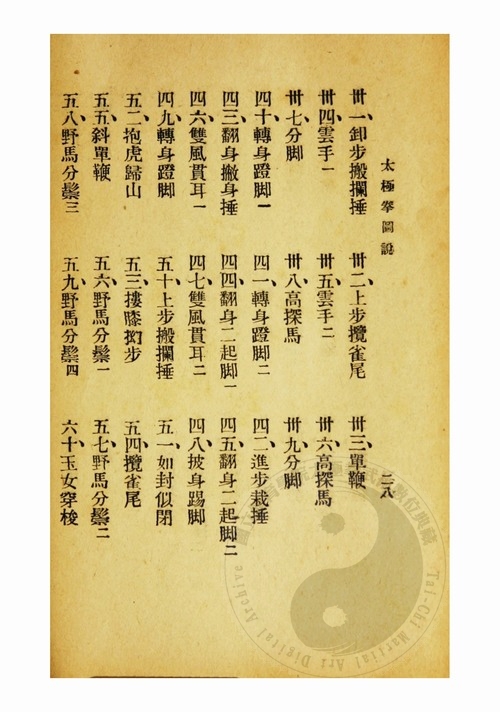 太極拳圖說
二八
卅一、卸步搬攔捶
卅二、上步攬雀尾
卅三、單鞭
卅四、雲手一
卅五、雲手二
卅六、高探馬
卅七、分脚
卅八、高探馬
卅九、分脚
四十、轉身蹬脚一
四一、轉身蹬脚二
四二、進步栽捶
四三、翻身撇身捶
四四、翻身二起脚一
四五、翻身二起脚二
四六、雙風貫耳一
四七、雙風貫耳二
四八、披身踢脚
四九、轉身蹬脚
五十、上步搬攔捶
五一、如封似閉
五二、抱虎歸山
五三、摟膝拗步
五四、攬雀尾
五五、斜單鞭
五六、野馬分鬃一
五七、野馬分鬃二
五八、野馬分鬃三
五九、野馬分鬃四
六十、玉女穿梭
Tai-Chi Martial Art Digital Archive